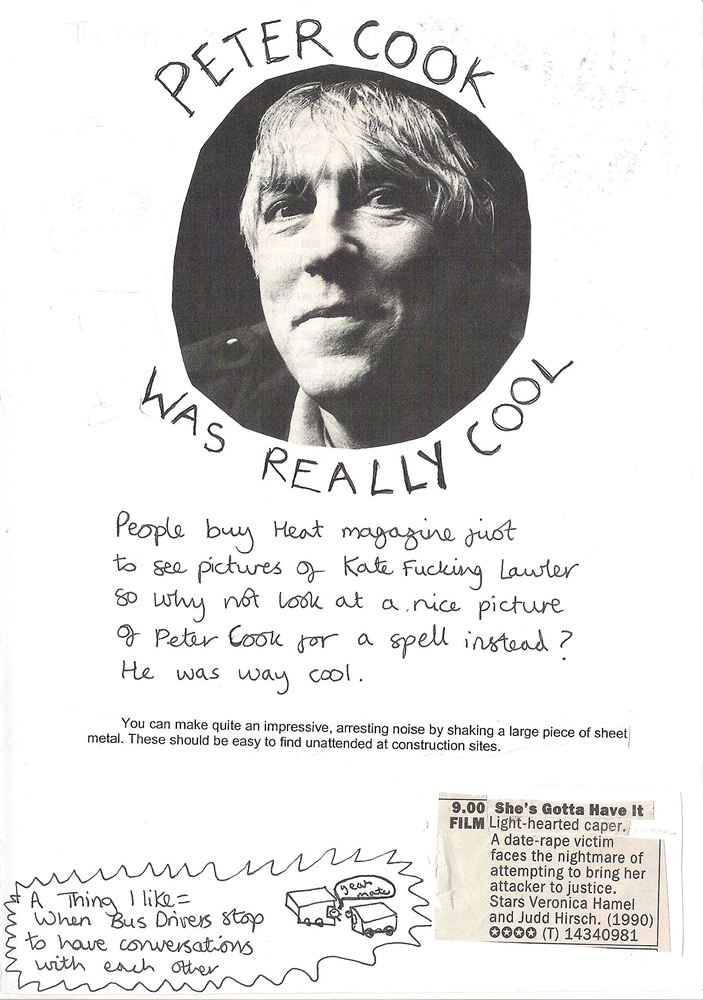 PETER COOK
WAS REALLY COOL
People buy Heat magazine just
to see pictures of Kate Fucking Lawler
so why not look at a nice picture
of Peter Cook for a spell instead?
He was way cool.
You can make quite an impressive, arresting noise by shaking a large piece of sheet
metal. These should be easy to find unattended at construction sites.
9.00 She's Gotta Have It
FILM Light-hearted caper.
A date-rape victim
faces the nightmare of
attempting to bring her
attacker to justice.
Stars Veronica Hamel
and Judd Hirsch. (1990)
✪✪✪✪ (T) 14340981
A Thing I like=
When Bus Drivers stop
to have conversations
with each other
yeah
mate